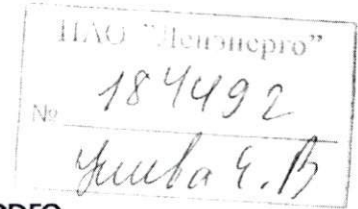 ПАО "Ленэнерго"
№ 184492
Е. В